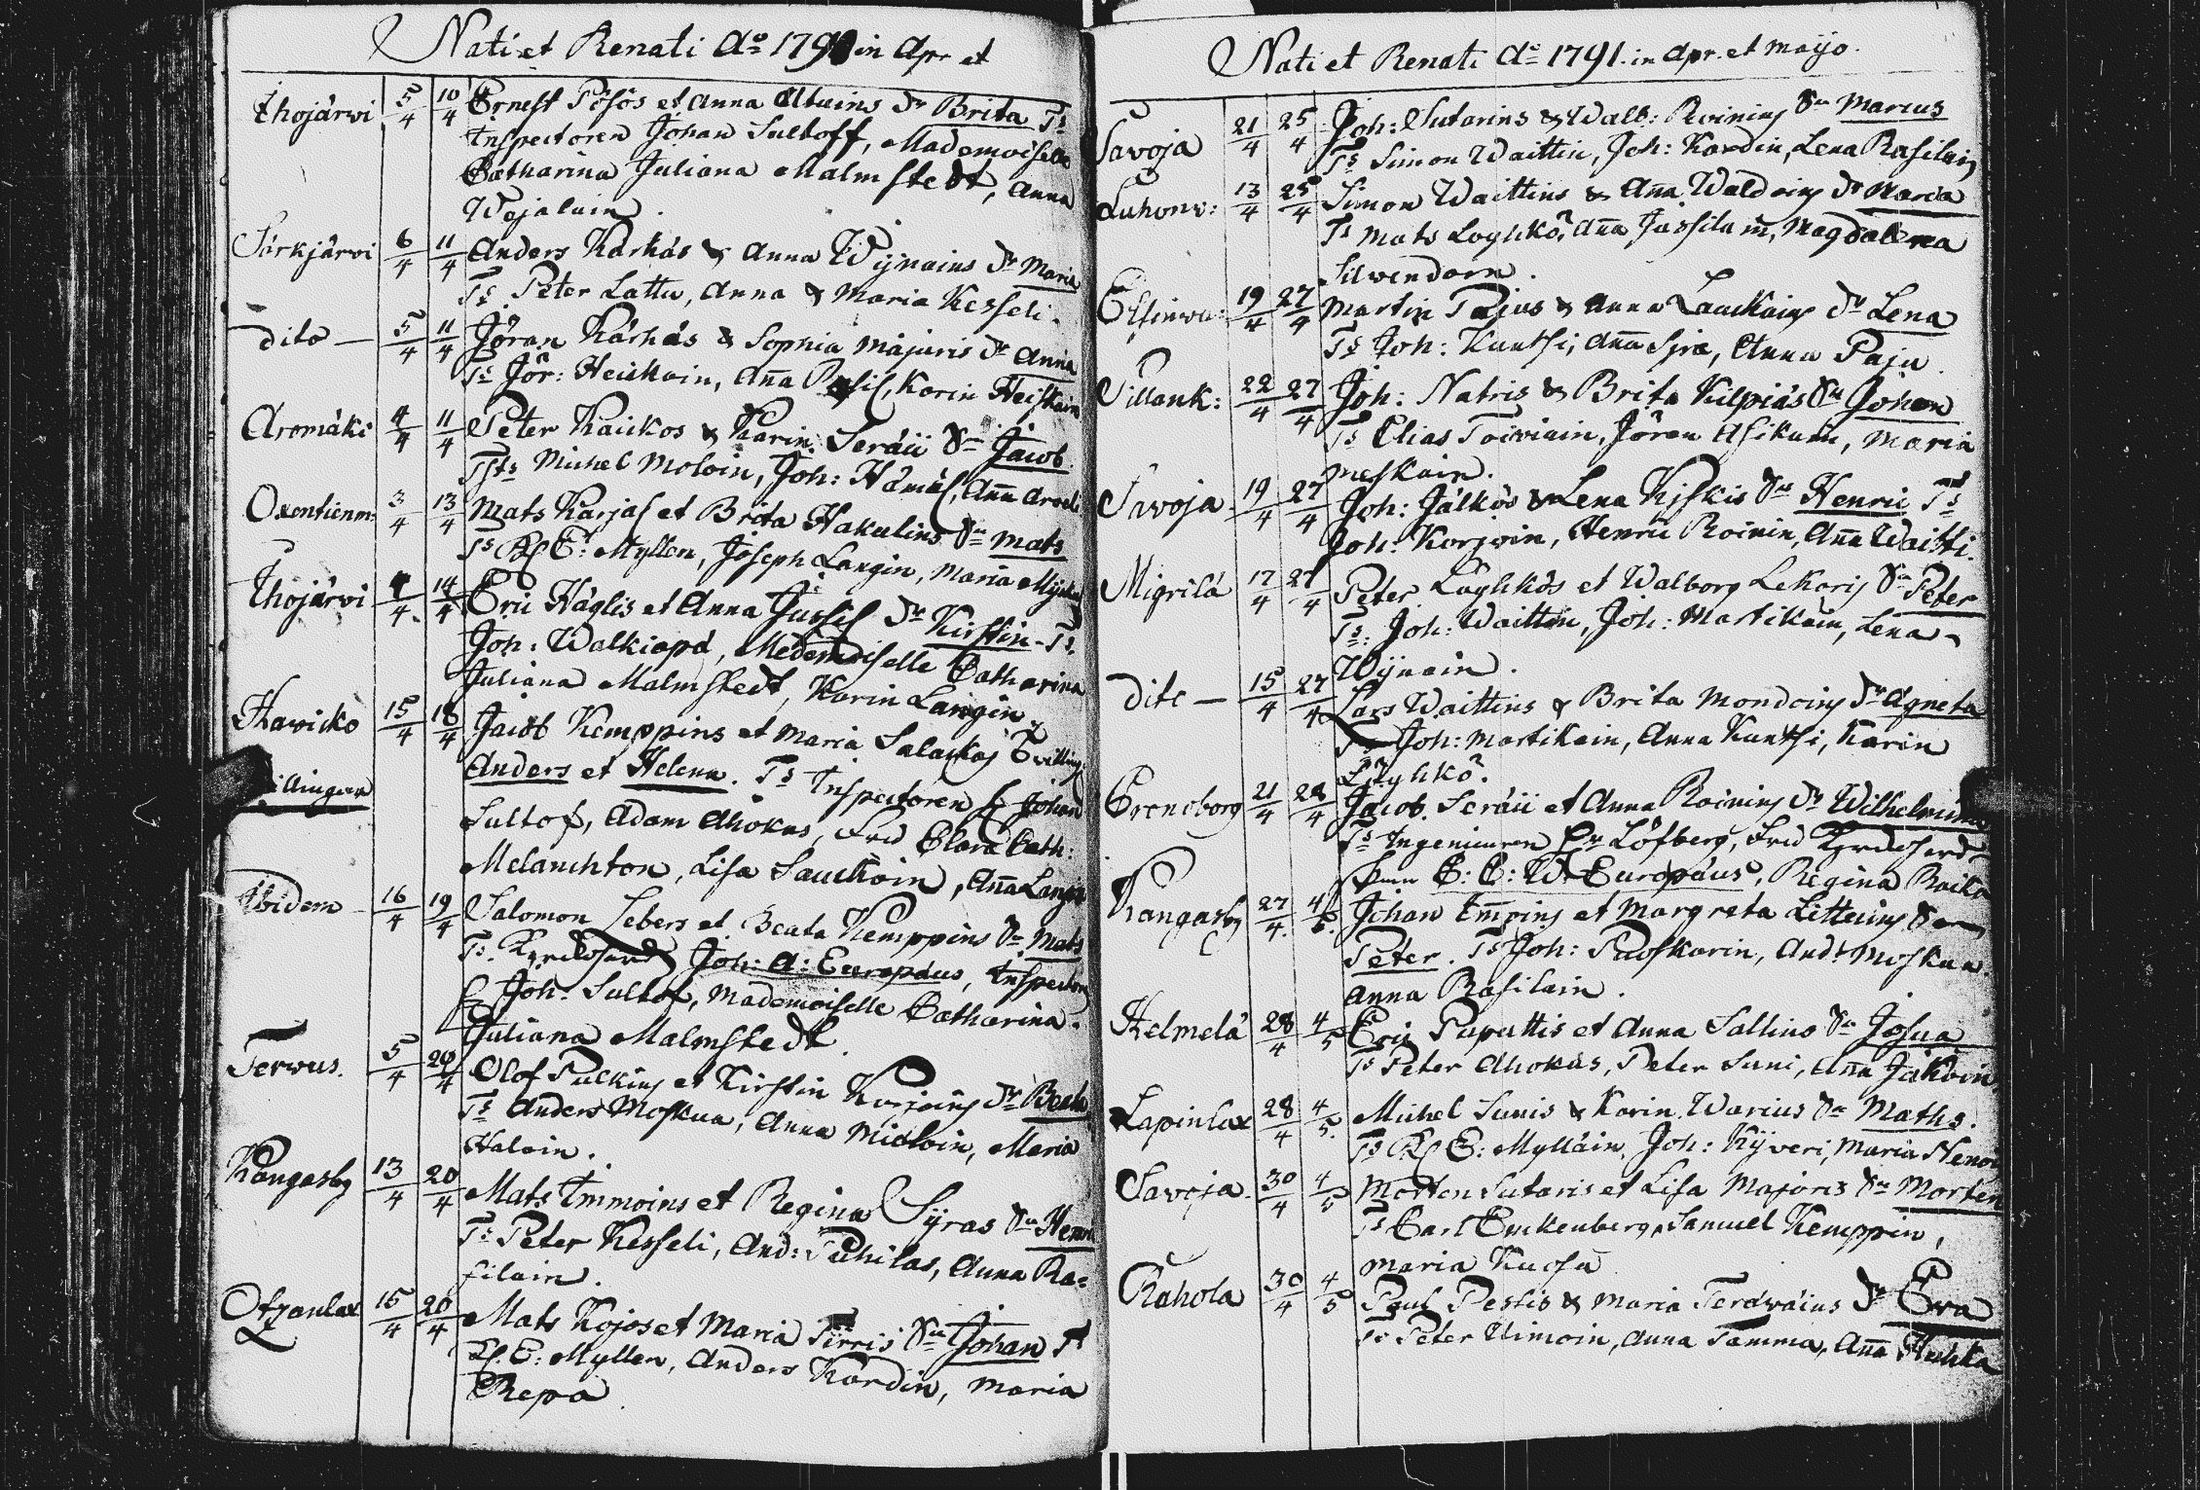 Nati et Renati Ao 1791 in Apr et
Ihojärwi 5/4 10/4 Ernest Pösös et Anna Atuins Dr Brita Ts
Inspectoren Johan Sultoff, Mademoiselle
Catharina Juliana Malmstedt, Anna
Särkjärwi 6/4 11/4 Anders Kärkäs & Anna Wijnains Dr Maria
Ts Peter Lattu, Anna & Maria Kesseli.
dito 5/4 11/4 Jöran Kärkäs & Sophia Majuris Dr Anna
Ts Jör: Heiskain, Aña Karin Heiskain
Aromäki 4/4 11/4 Peter Kaickos & Karin Seräii Sn Jacob
Tsts Michel Moloin, Joh: Hämäl, Aña
3/4 13/4 Mats Karjal et Brita Hakulins Sn Mats
Ts E: Myllen, Joseph Langin, Maria
Ihojärwi 4/4 14/4 Eric Häglis et Anna Dr Kirstin Ts
Joh: Walkiapä, Mademoiselle Catharina
Juliana Malmstedt, Karin Langin
Hawicko 15/4 18/4 Jacob Kemppins et Maria
Anders et Helena. Ts Inspectoren Johan
Sultof, Adam Ahokas, Clara Cath:
Melanchton, Lisa Sauckoin, Aña Langin
Ibidem 16/4 19/4 Salomon Sebers et Beata Kemppins Sn Mats
Ts Joh: A: Europäus, Inspector
Joh: Sultof, Mademoiselle Catharina
Juliana Malmstedt
Terwus. 5/4 20/4 Olof Pulkins et Kirstin Karjoins Dr Beata
Ts Anders Moskua, Anna Maria
Haloin.
Kangasby 13/4 20/4 Mats Immoins et Regina Syras Sn Henric
Ts Peter Kesseli, And: Pukilas, Anna Ra=
silain.
Otzanlax 15/4 20/4 Mats Kojos et Maria Tirris Sn Johan Ts
E: Myllen, Anders Kardin, Maria
Repa
Nati et Renati Ao 1791. in Apr. et Maijo.
Savoja 21/4 25/4 Joh: Sutarins & Walb: Roinins Sn Marcus
Ts Simon Waittin, Joh: Kardin, Lena Rasilain
13/4 25/4 Simon Waittins & Aña Waldoins Dr Maria
Ts Mats Löyhkö, Aña Jussilain, Magdalena
Silwendoin.
19/4 27/4 Martin Pajus & Anna Lauckains Dr Lena
Ts Joh: Kuntsi, Aña Anna Paju
Sillank: 22/4 27/4 Joh: Natris & Brita Kilpiäs Sn Johan
Ts Elias Toiviain, Jören Asikain, Maria
Meskain.
Savoja 19/4 27/4 Joh: Jälkös & Lena Kiskis Sn Henric Ts
Joh: Korjoin, Henric Roinin, Aña Waitti.
Migrilä 17/4 27/4 Peter Löyhkös et Walborg Lekoris Sn Peter
Ts: Joh: Waittin, Joh: Martikain, Lena
Wijnain.
dito 15/4 27/4 Lars Waittins & Brita Mondoins Dr Agneta
Ts Joh: Martikain, Anna Kuntsi, Karin
Löyhkö.
Croneborg 21/4 28/4 Jacob Seräii et Anna Roinins Dr Wilhelmina
Ts Ingenieuren Löfberg,
C: C: W: Europäus, Regina
Kangasby 27/4 4/5 Johan Impins et Margreta Sn
Peter. Ts Joh: Puoskarin, And: Moskua
Anna Rasilain.
Helmelä 28/4 4/5 Eric Paputtis et Anna Sallins Sn Josua
Ts Peter Ahokas, Peter Suni, Aña
Lapinlax 28/4 4/5 Michel Sunis & Karin Warius Sn Maths.
Ts E: Mylläin, Joh: Kyweri, Maria
Savoja 30/4 4/5 Morten Sutaris et Lisa Majoris Sn Morten
Ts Carl Enckenberg, Samuel Kemppin,
Maria Kuosa
Rahola 30/4 4/5 Paul Pestis & Maria Terdwäius Dr Ewa
Ts Peter Uimoin, Anna Tamma, Aña